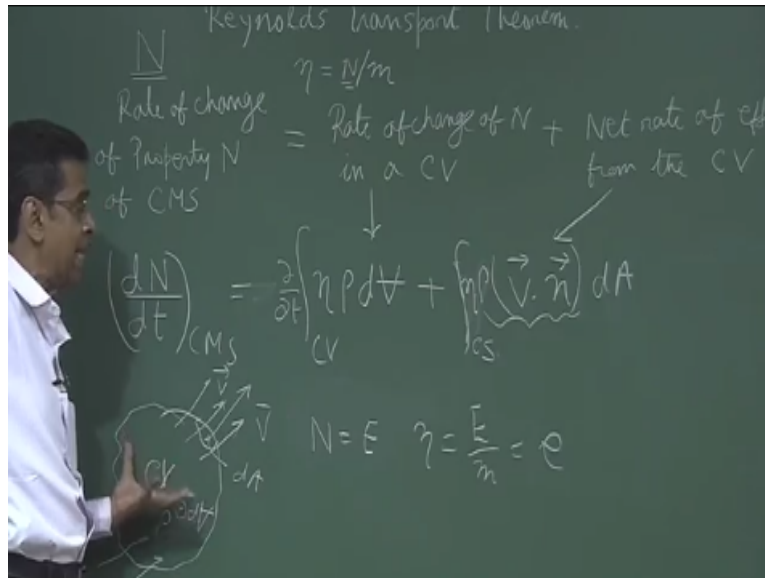 Reynolds Transport Theorem.
N
η = N/m
Rate of change
of Property N
of CMS
= Rate of change of N
in a CV
+ Net rate of eff
from the CV
(dN/dt)CMS = ∂/∂t ∫CV ηρdV + ∫CS ηρ(V⃗.n⃗) dA
V⃗
V⃗
CV
dA
dV
N = E η = E/m = e